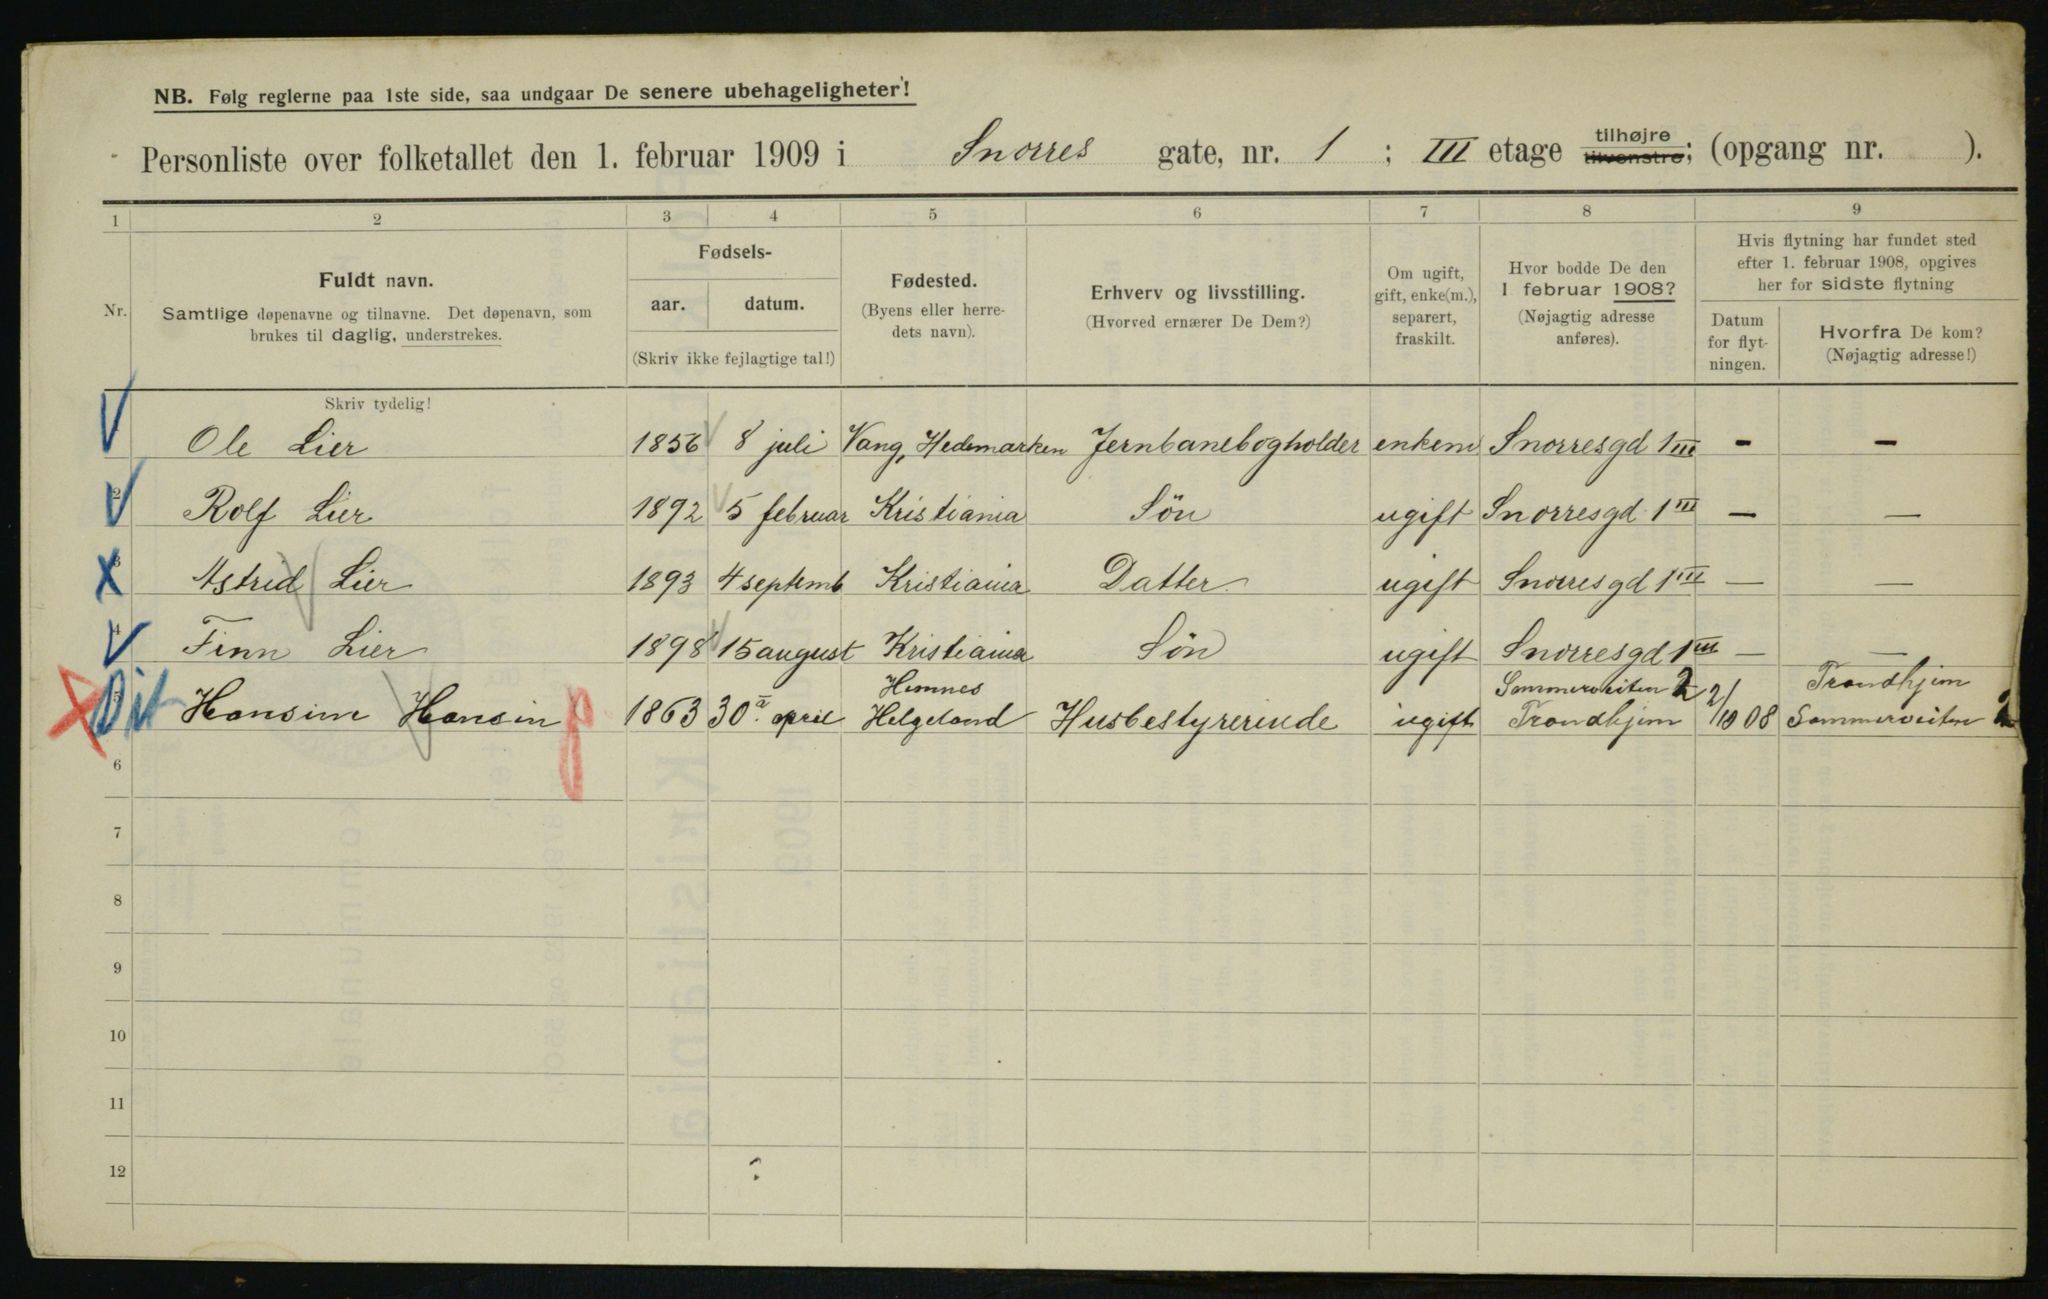 NB. Følg reglerne paa 1ste side, saa undgaar De senere ubehageligheter!
Personliste over folketallet den 1. februar 1909 i Snorres gate, nr. 1 ; III etage tilhøjre tilvenstre; (opgang nr. ).
1 2 3 4 5 6 7 8 9
Nr.
Fuldt navn.
Samtlige døpenavne og tilnavne. Det døpenavn, som
brukes til daglig, understrekes.
Fødsels-
aar. datum.
(Skriv ikke fejlagtige tal!)
Fødested.
(Byens eller herre-
dets navn).
Erhverv og livsstilling.
(Hvorved ernærer De Dem?)
Om ugift,
gift, enke(m.),
separert,
fraskilt.
Hvor bodde De den
1 februar 1908?
(Nøjagtig adresse
anføres).
Hvis flytning har fundet sted
efter 1. februar 1908, opgives
her for sidste flytning
Datum
for flyt-
ningen.
Hvorfra De kom?
(Nøjagtig adresse!)
Skriv tydelig!
Ole Lier 1856 8 juli Vang, Hedemarken Jernbanebogholder enkem Snorresgd 1 III - -
2 Rolf Lier 1892 5 februar Kristiania Sön ugift Snorresgd 1 III — —
3 Astrid Lier 1893 4 septemb Kristiania Datter ugift Snorresgd 1 III — —
4 Finn Lier 1898 15 august Kristiania Sön ugift Snorresgd 1 III — —
Hemnes Sommerveiten 2 Trondhjem
5 Hansine Hansen 1863 30 april Helgeland Husbestyrerinde ugift Trondhjem 2/10 08 Sommerveiten 2
6
7
8
9
10
11
12